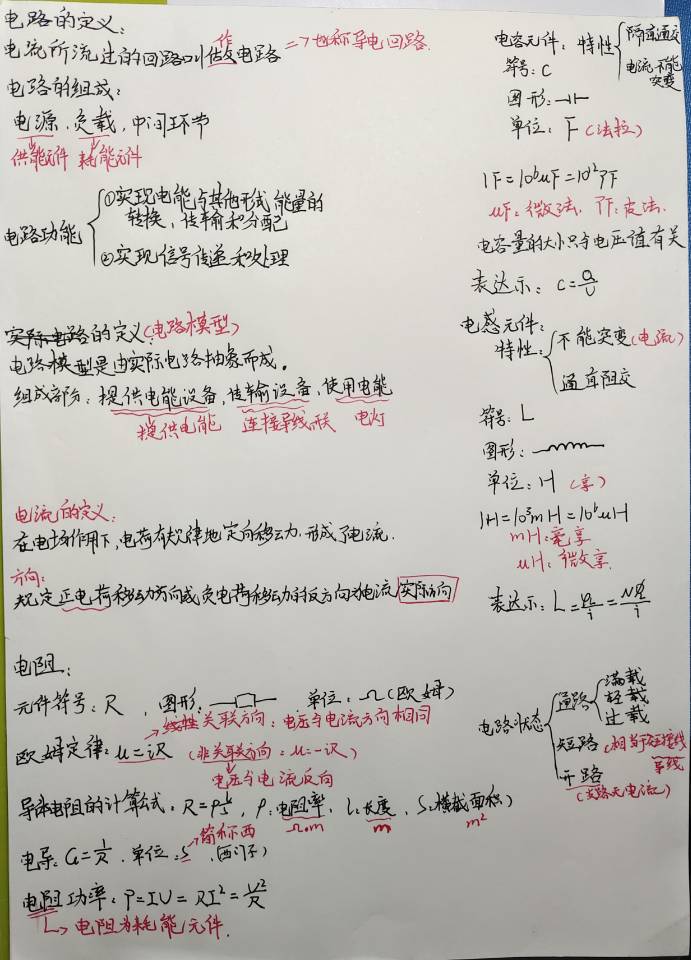 电路的定义:
电流所流过的回路叫做电路 => 也称导电回路.
电路的组成:
电源、负载、中间环节
供能元件 耗能元件
电路功能
①实现电能与其他形式能量的
转换，传输和分配
②实现信号传递和处理
实际电路的定义:(电路模型)
电路模型是由实际电路抽象而成。
组成部分: 提供电能设备, 传输设备, 使用电能
提供电能 连接导线 电灯
电流的定义:
在电场作用下,电荷有规律地定向移动,形成了电流.
方向:
规定正电荷移动方向或负电荷移动的反方向为电流实际方向
电阻:
元件符号: R , 图形: 单位: Ω(欧姆)
→线性关联方向: 电压与电流方向相同
欧姆定律: u=iR (非关联方向: u=-iR)
电压与电流反向
导体电阻的计算式: R=ρL/S, ρ:电阻率, L:长度, S:横截面积)
Ω.m m m²
→简称西
电导: G=1/R, 单位:S (西门子)
电阻功率: P=IU=RI²=U²/R
↳ 电阻为耗能元件.
电容元件: 特性
隔直通交
电流不能
突变
符号: C
图形:
单位: F (法拉)
1F=10⁶uF=10¹²PF
uF: 微法, PF:皮法.
电容量的大小只与电压值有关
表达示: C=Q/U
电感元件:
特性:
不能突变(电流)
通直阻交
符号: L
图形:
单位: H (享)
1H=10³mH=10⁶uH
mH:毫享
uH: 微享.
表达示: L=φL/i=Nφ/i
电路状态
通路
满载
轻载
过载
短路(相当于连接线
导线
开路
(支路无电流)